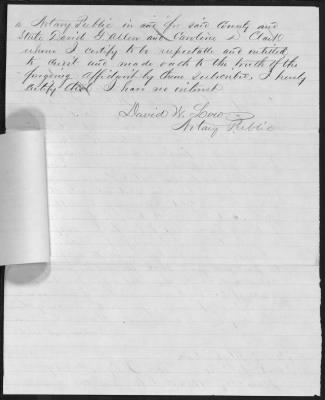 a Notary Public in and for said County and
State David G Allen and Caroline D Clark
whom I certify to be respectable and entitled
to credit and made oath to the truth of the
foregoing affidavit by them subscribed. I hereby
certify that I have no interest
David W.
Notary Public